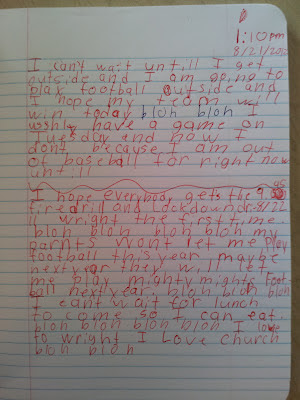 1:10pm
8/21/20
I cant wait untill I get
outside and I am going to
play football outside and
I hope my team will
win today bloh bloh I
have a game on
Tuesday and now I
dont because I am out
of baseball for right now
untill
I hope everybody gets the 9
firedrill and Lockdown 8/22
I wright the first time
bloh bloh bloh bloh my
parnts wont let me play
football this year maybe
next year they will let
me play mighty mights foot-
ball next year. bloh bloh bloh
I cant wait for lunch
to come so I can eat.
bloh bloh bloh bloh I love
to wright I Love church
bloh bloh